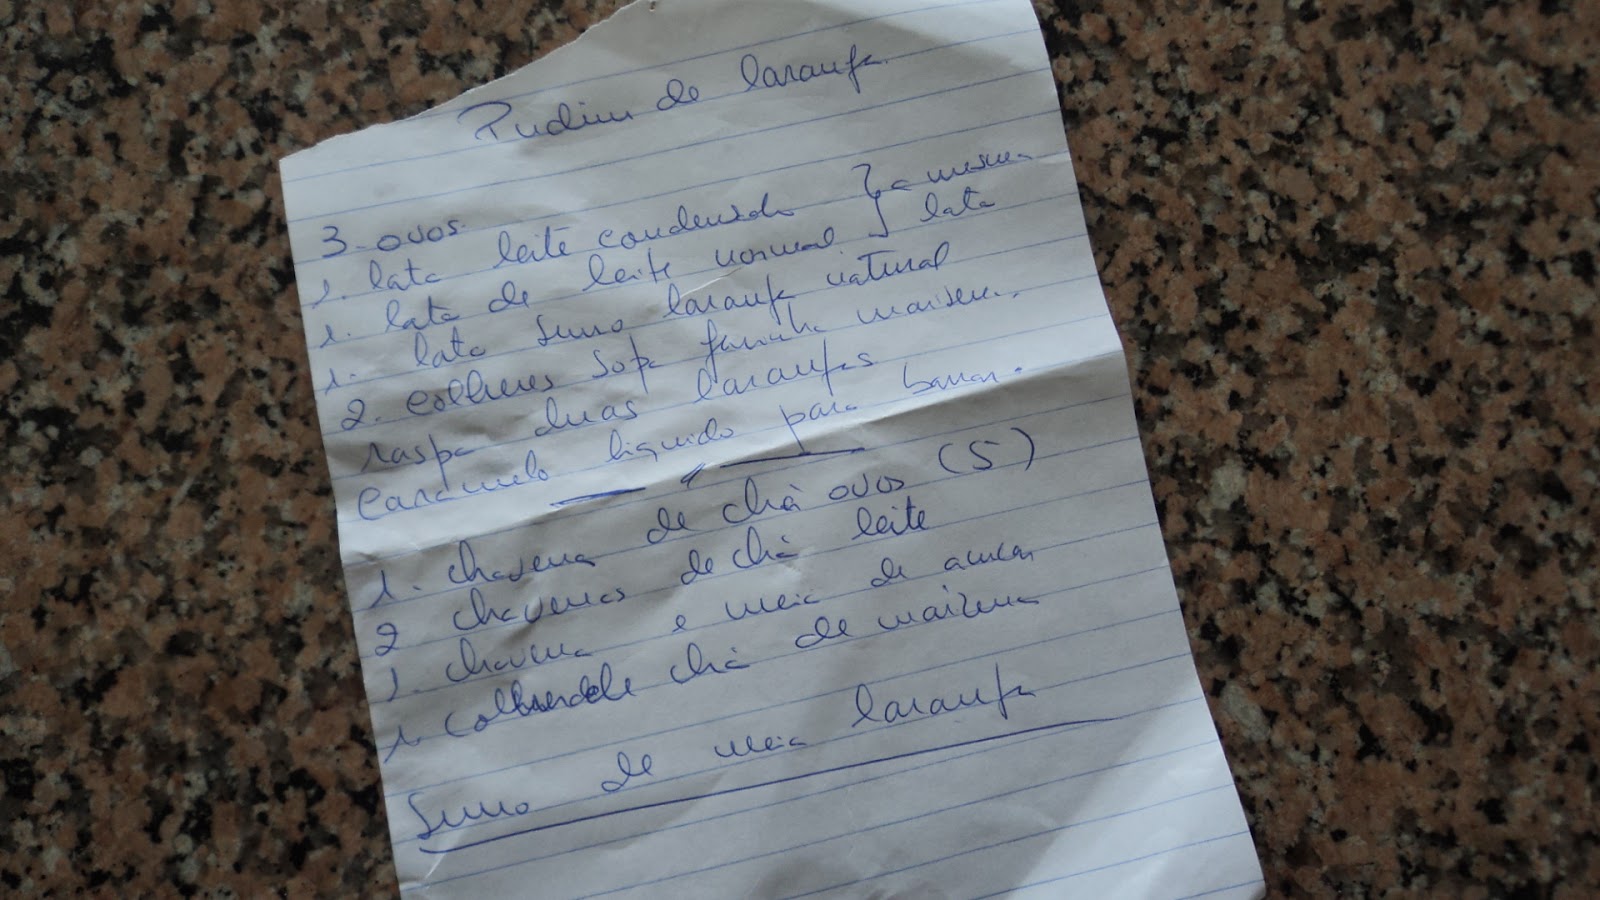 Pudim de laranja
3. ovos.
1. lata leite condensado } a mesma
1. lata de leite normal } lata
1. lata sumo laranja natural
2. colheres sopa farinha maisena.
raspa duas laranjas
Caramelo liquido para barrar.
1. chavena de chá ovos (5)
2 chavenas de chá leite
1. chavena e meia de açucar
1. colher de chá de maizena
Sumo de meia laranja